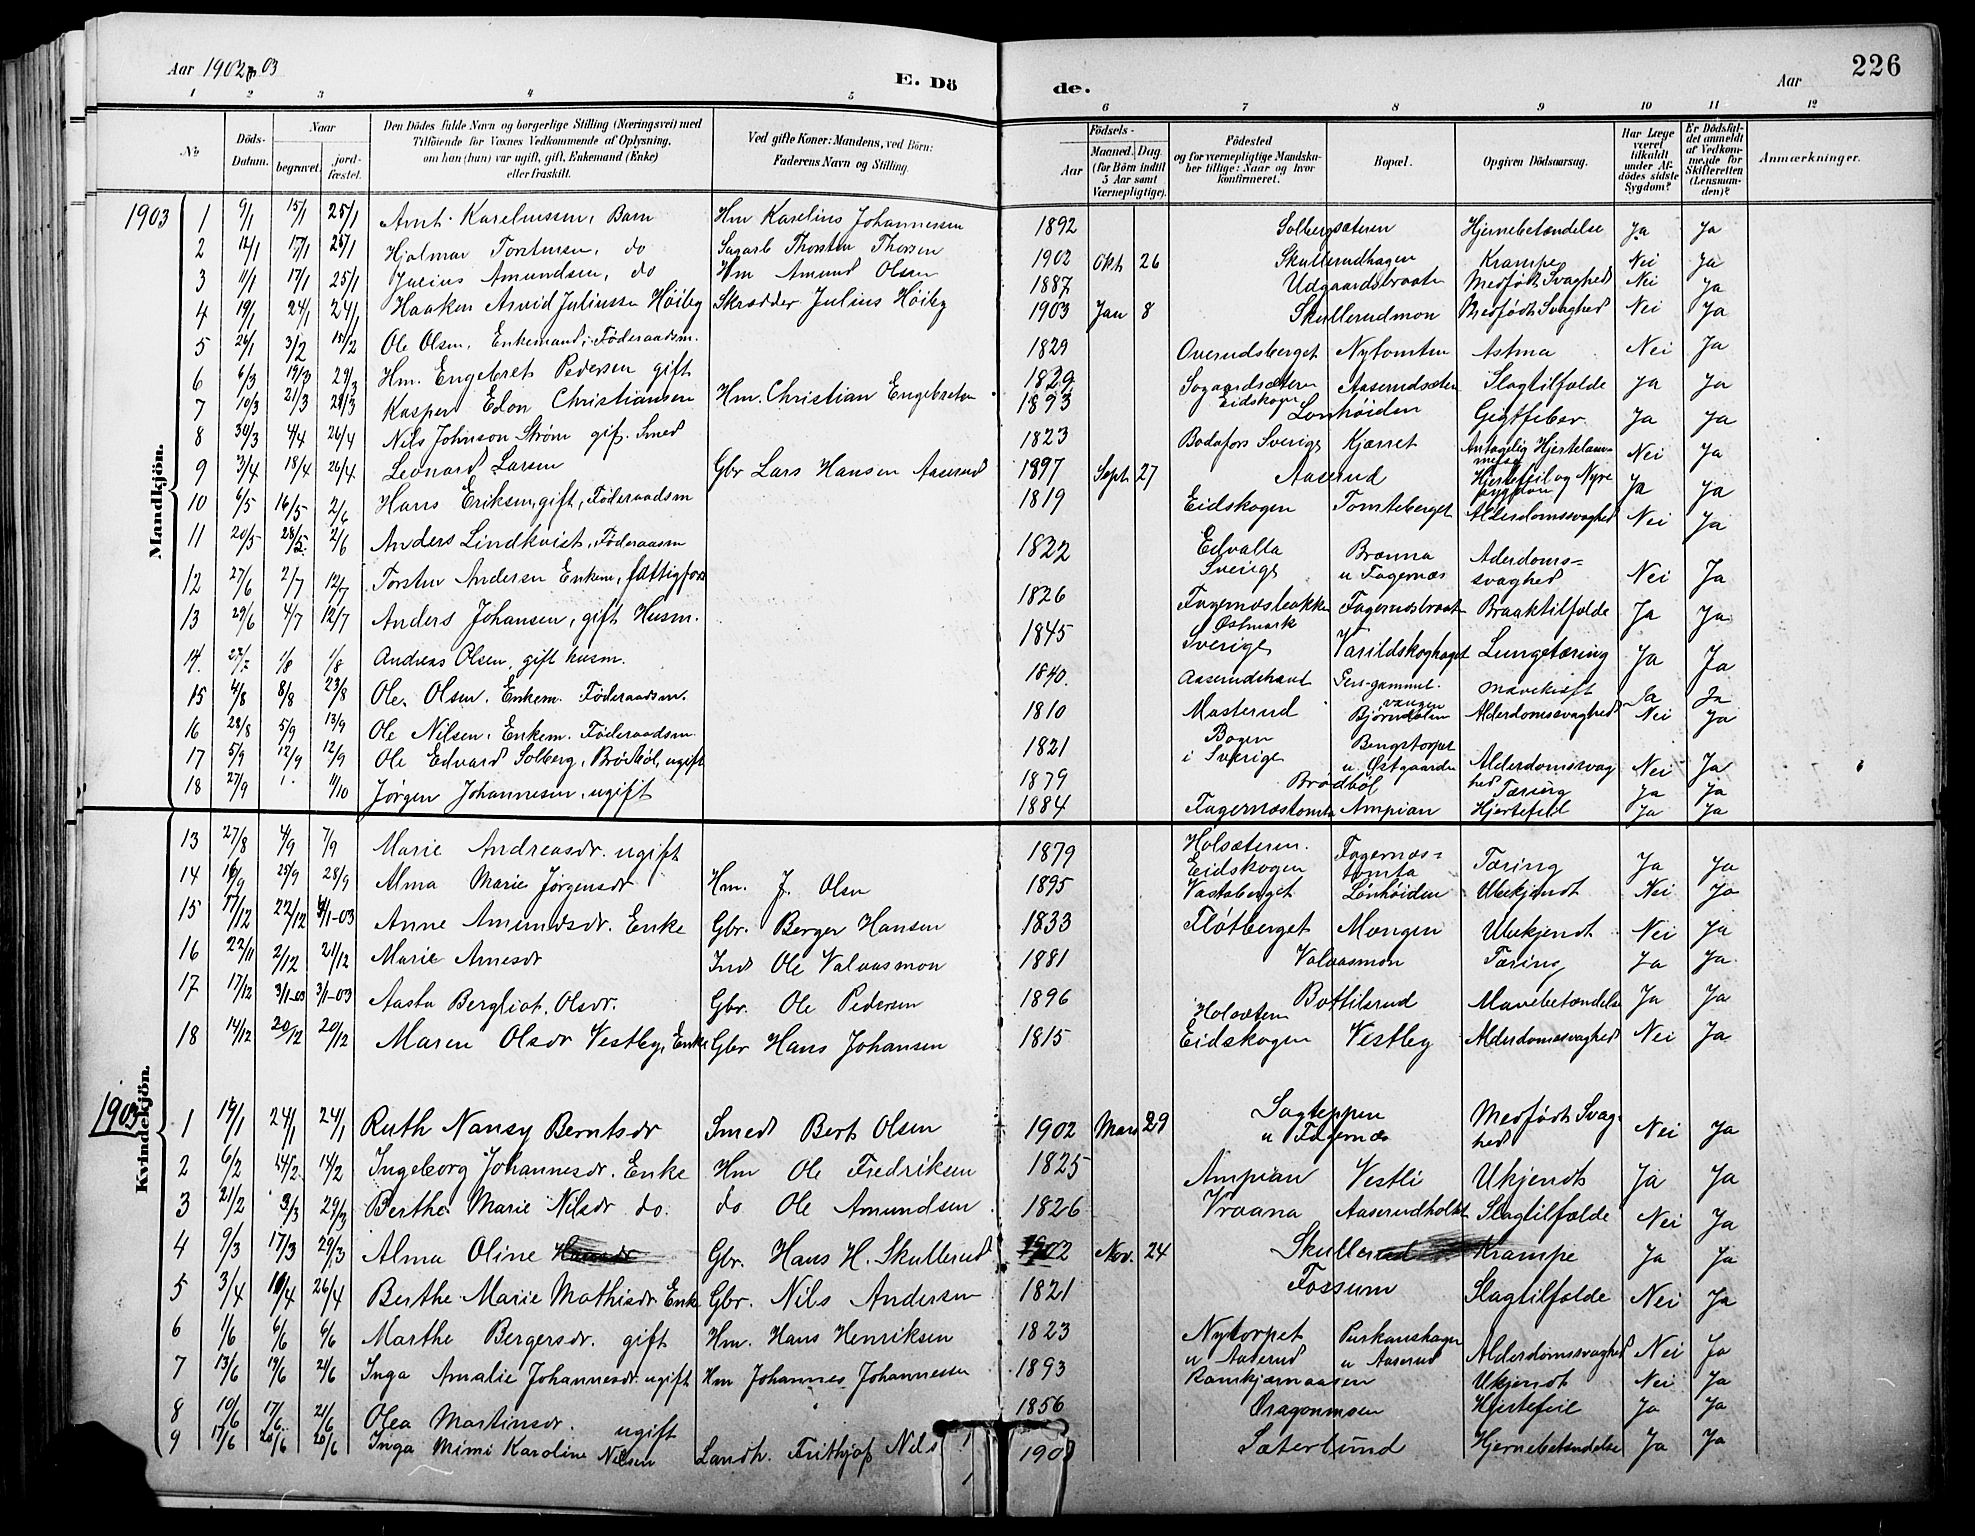 Aar 1902 og 03
E. Dö de.
Aar 226
1 2 3 4 5 6 7 8 9 10 11 12
No
Döds-Datum.
Naar begravet. jordfæstet.
Den Dödes fulde Navn og borgerlige Stilling (Næringsvei) med Tilföiende for Voxnes Vedkommende af Oplysning, om han (hun) var ugift, gift, Enkemand (Enke) eller fraskilt.
Ved gifte Koner: Mandens, ved Börn: Faderens Navn og Stilling.
Födsels-
Aar Maaned. Dag (for Börn indtil 5 Aar samt Værnepligtige).
Födested og for værnepligtige Mandskaber tillige: Naar og hvor konfirmeret.
Bopæl.
Opgiven Dödsaarsag.
Har Læge været tilkaldt under Afdödes sidste Sygdom?
Er Dödsfaldet anmeldt af Vedkommende for Skifteretten (Lensmanden)?
Anmærkninger.
Mandkjön.
1903 1 9/1 15/1 25/1 Arnt Karelinssen, Barn Hm Karelius Johannessen 1892 Solbergsæteren Hjernebetændelse Ja Ja
2 12/1 17/1 25/1 Hjalmar Torstensen, do Sagarb Thorsten Thorsen 1902 Okt 26 Skullerudhagen Krampe Nei Ja
3 11/1 17/1 25/1 Julius Amundsen, do Hm Amund Olsen 1887 Udgaardsbraaten Medfødt Svaghed Nei Ja
4 19/1 24/1 24/1 Haakon Arvid Juliussen Höiby Skrædder Julius Höiby 1903 Jan 8 Skullerudmon Medfødt Svaghed Nei Ja
5 26/1 3/2 15/2 Ole Olsen, Enkemand, Föderaadsm. 1829 Overudsberget Nytomten Astma Nei Ja
6 6/3 19/3 29/3 Hm. Engebret Pedersen gift 1829 Sogaardsæteren Eidskogen Aaserudsæten Slagtilfælde Ja Ja
7 10/3 21/3 29/3 Kasper Edon Christiansen Hm. Christian Engebretsen 1893 Lonhöiden Gigtfeber Ja Ja
8 30/3 4/4 26/4 Nils Johnson Strøm gif. Smed 1823 Bodafors Sverige Kjærret Antagelig Hjertelammelse Nei Ja
9 3/4 18/4 26/4 Leonard Larsen Gbr Lars Hansen Aaserud 1897 Sept 27 Aaserud Hjertefeil og Nyresygdom Ja Ja
10 6/5 16/5 2/6 Hans Eriksen, gift, Föderaadsm 1819 Eidskogen Tomteberget Alderdomssvaghed Nei Ja
11 20/5 28/5 2/6 Anders Lindkvist, Föderaasm 1822 Edvalla Sverige Brænna u Fagernæs Aderdomssvaghed Nei Ja
12 27/6 2/7 12/7 Torsten Andersen Enkem, fattigfors 1826 Fagernæsbakken Fagernæsbraaten Braaktilfælde Ja Ja
13 29/6 4/7 12/7 Anders Johansen, gift Husm. 1845 Østmark Sverige Varildskoghaget Lungetæring Ja Ja
14 1/8 1/8 Andreas Olsen, gift husm. 1840 Mavekræft Ja Ja
15 4/8 8/8 23/8 Ole Olsen, Enkem. Föderaadsm. 1810 Masterud Bjørndalen Alderdomssvaghed Nei Ja
16 28/8 5/9 13/9 Ole Nilsen, Enkem. Föderaadsm. 1821 Bogen i Sverige Bengstorpet u. Østgaarden Alderdomssvaghed Nei Ja
17 5/9 12/9 12/9 Ole Edvard Solberg, Brödböl, ugift 1879 Brødböl Tæring Ja Ja
18 27/9 11/10 Jørgen Johannesen, ugift 1884 Fagernæstomta Ampian Hjertefeil Ja Ja
Kvindekjön.
13 27/8 4/9 7/9 Marie Andreasdr. ugift 1879 Holsæteren Eidskogen Fagernæstomta Tæring Ja Ja
14 16/9 25/9 28/9 Alma Marie Jørgensdr Hm. J. Olsen 1895 Vastaberget Lønhøiden Ubekjendt Nei Ja
15 17/12 22/12 4/1-03 Anne Amundsdr. Enke Gbr. Berger Hansen 1833 Fløtberget Mangen Ubekjendt Nei Ja
16 22/11 2/12 21/12 Marie Arnesdr Ind Ole Valaasmon 1881 Valaasmon Tæring Ja Ja
17 17/12 3/1-03 3/1-03 Aasta Bergliot Olsdr. Gbr. Ole Pedersen 1896 Bottilsrud Mavebetændelse Ja Ja
18 14/12 20/12 20/12 Maren Olsdr Vestby, Enke Gbr Hans Johansen 1815 Holsæteren Eidskogen Vestby Alderdomssvaghed Nei Ja
1903
1 19/1 24/1 24/1 Ruth Nansy Berntsdr Smed Bert Olsen 1902 Mars 29 Sagteppen u Fagernæs Medfødt Svaghed Nei Ja
2 6/2 14/2 14/2 Ingeborg Johannesdr. Enke Hm Ole Fredriksen 1825 Ampian Vestli Ukjendt Ja Ja
3 21/2 3/3 29/3 Berthe Marie Nilsdr do. do Ole Amundsen 1826 Vraana Aaserudholtet Slagtilfælde Nei Ja
4 9/3 17/3 29/3 Alma Oline Gbr. Hans H. Skullerud 1902 Nov. 24 Skullerud Krampe Ja Ja
5 3/4 10/4 26/4 Berthe Marie Mathisdr Enke Gbr. Nils Andersen 1821 Fossum Slagtilfælde Nei Ja
6 1/6 6/6 6/6 Marthe Bergersdr. gift Hm. Hans Henriksen 1823 Nytorpet u Aaserud Purkanshagen u Aaserud Alderdomssvaghed Nei Ja
7 13/6 19/6 21/6 Inga Amalie Johannesdr. ugift Hm Johannes Johannessen 1893 Ramkjærnaasen Ukjendt Nei Ja
8 10/6 17/6 21/6 Olea Martinsdr. ugift 1856 Dragonmoen Hjertefeil Ja Ja
9 17/6 20/6 20/6 Inga Mimi Karoline Nilsen Landh. Frithjof Nils 190 Sæterlund Hjernebetændelse Ja Ja